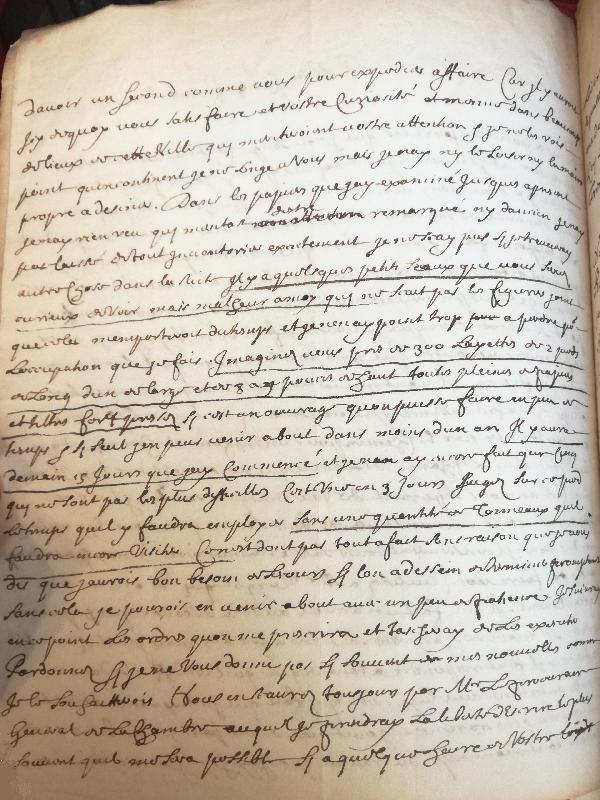 davoir un second comme vous pour expedier affaire Car il y auroit
icy dequoy vous satisfaire et vostre Curiosité et mesme dans beaucoup
de lieux de cette Ville qui meriteroient vostre attention Je ne les vois
point qu'incontinent je ne songe a Vous mais je nay ny le Loisir ny la main
propre a desiner. Dans les papiers que jay examiné jusques apresent
je nay rien veu qui meritat destre remarqué ny dancien je nay
pas laissé de tout Inventorier exactement je ne scay pas si je trouveray
autre Chose dans la suite Il y a quelques petits Seaux que vous seriez
curieux de voir mais malheur a moy qui ne scait pas les figurer joint
que cela memporteroit du temps et je nen ay point trop a perdre pr
Loccupation que je fais. Imaginez vous pres de 300 Layettes de 2 pieds
de Long d'un de large et de 3 a 4 pouces de haut toutes pleines de papiers
et tiltres fort pressez si cest un ouvrage quon puisse faire en peu de
temps et si seul jen peus venir about dans moins dun an Il y aura
demain 15 Jours que jay Commencé et je nen ay encore fait que Cinq
qui ne sont pas les plus dificilles Cest Une en 3 Jours Jugez sur ce pied
le temps quil y faudra employer sans une quantité de Tonneaux quil
faudra encore Visiter Ce nest dont pas tout a fait sans raison que je vous
dis que jaurois bon besoin de secours si lon a dessein de
sans cela je pourois en venir about avec un peu de patience Je suivray
en ce point Les ordres quon me prescrira et tascheray de Les executer
Pardonnez si je ne Vous donne pas si souvent de mes nouvelles comme
Je le souhaitterois Vous en scaurez tousjours par Mr Le procureur
General de La Chambre auquel je prendray La liberté d'Escrire le plus
souvent quil me sera possible Si a quelque heure de Vostre loisir